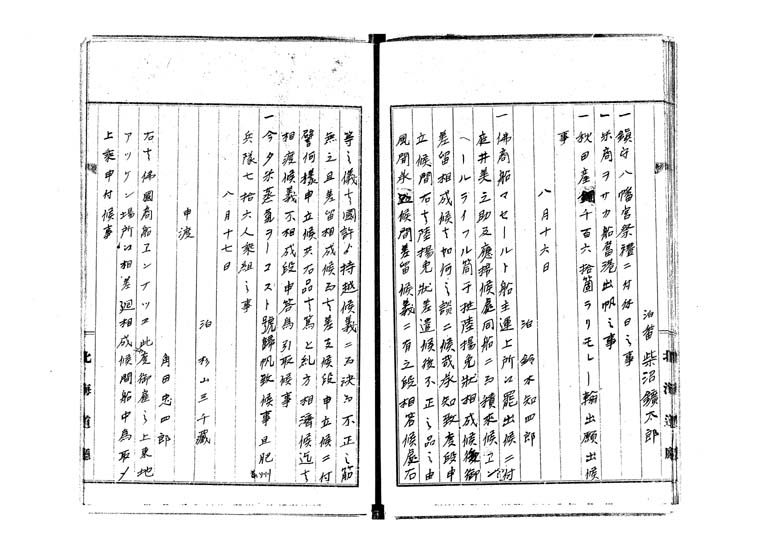 泊番 柴沼鑛太郎
一鎮守八幡宮祭禮ニ付休日之事
一米商ヲサカ船當港出帆之事
一秋田産銅千百六拾箇ヲリモレー輸出願出候
事
八月十六日
泊 鈴木知四郎
一佛商船マセールト船主運上所江罷出候ニ付
庭井美之助及應接候處同船ニ而積來候エン
ヘールライフル筒千挺陸揚免狀相成候後御
差留相成候ナ如何之談ニ候哉承知致度段申
立候間右ナ陸揚免狀差遣候後不正之品之由
風聞承候間差留候義ニ有之段相答候處右
等之儀ナ國許より持越候義ニ而決而不正之筋
無之且差留相成候而ナ差支候段申立候ニ付
譬何樣申立候共右品ナ篤と糺方相濟候迄ナ
相渡候義不相成段申答爲引取候事
一今夕米蒸氣ヲーコスト號歸帆致候事且肥州
兵隊七拾六人乘組之事
八月十七日
泊 杉山三千藏
申渡
角田忠四郎
右ナ佛國商船エンアツコ此度御雇之上東地
アツケシ場所江相差廻相成候間船中爲取〆
上乘申付候事
北海道廳
北海道廳